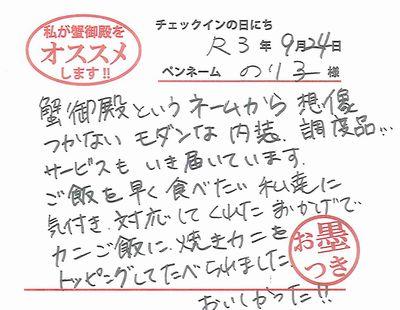 私が蟹御殿を
オススメ
します!!
チェックインの日にち
R3年9月24日
ペンネーム のり子 様
蟹御殿というネームから想像
つかないモダンな内装、調度品…
サービスもいき届いています。
ご飯を早く食べたい私達に
気付き、対応してくれたおかげで
カニご飯に、焼きカニを
トッピングしてたべられました。
おいしかった!!
お墨
つき